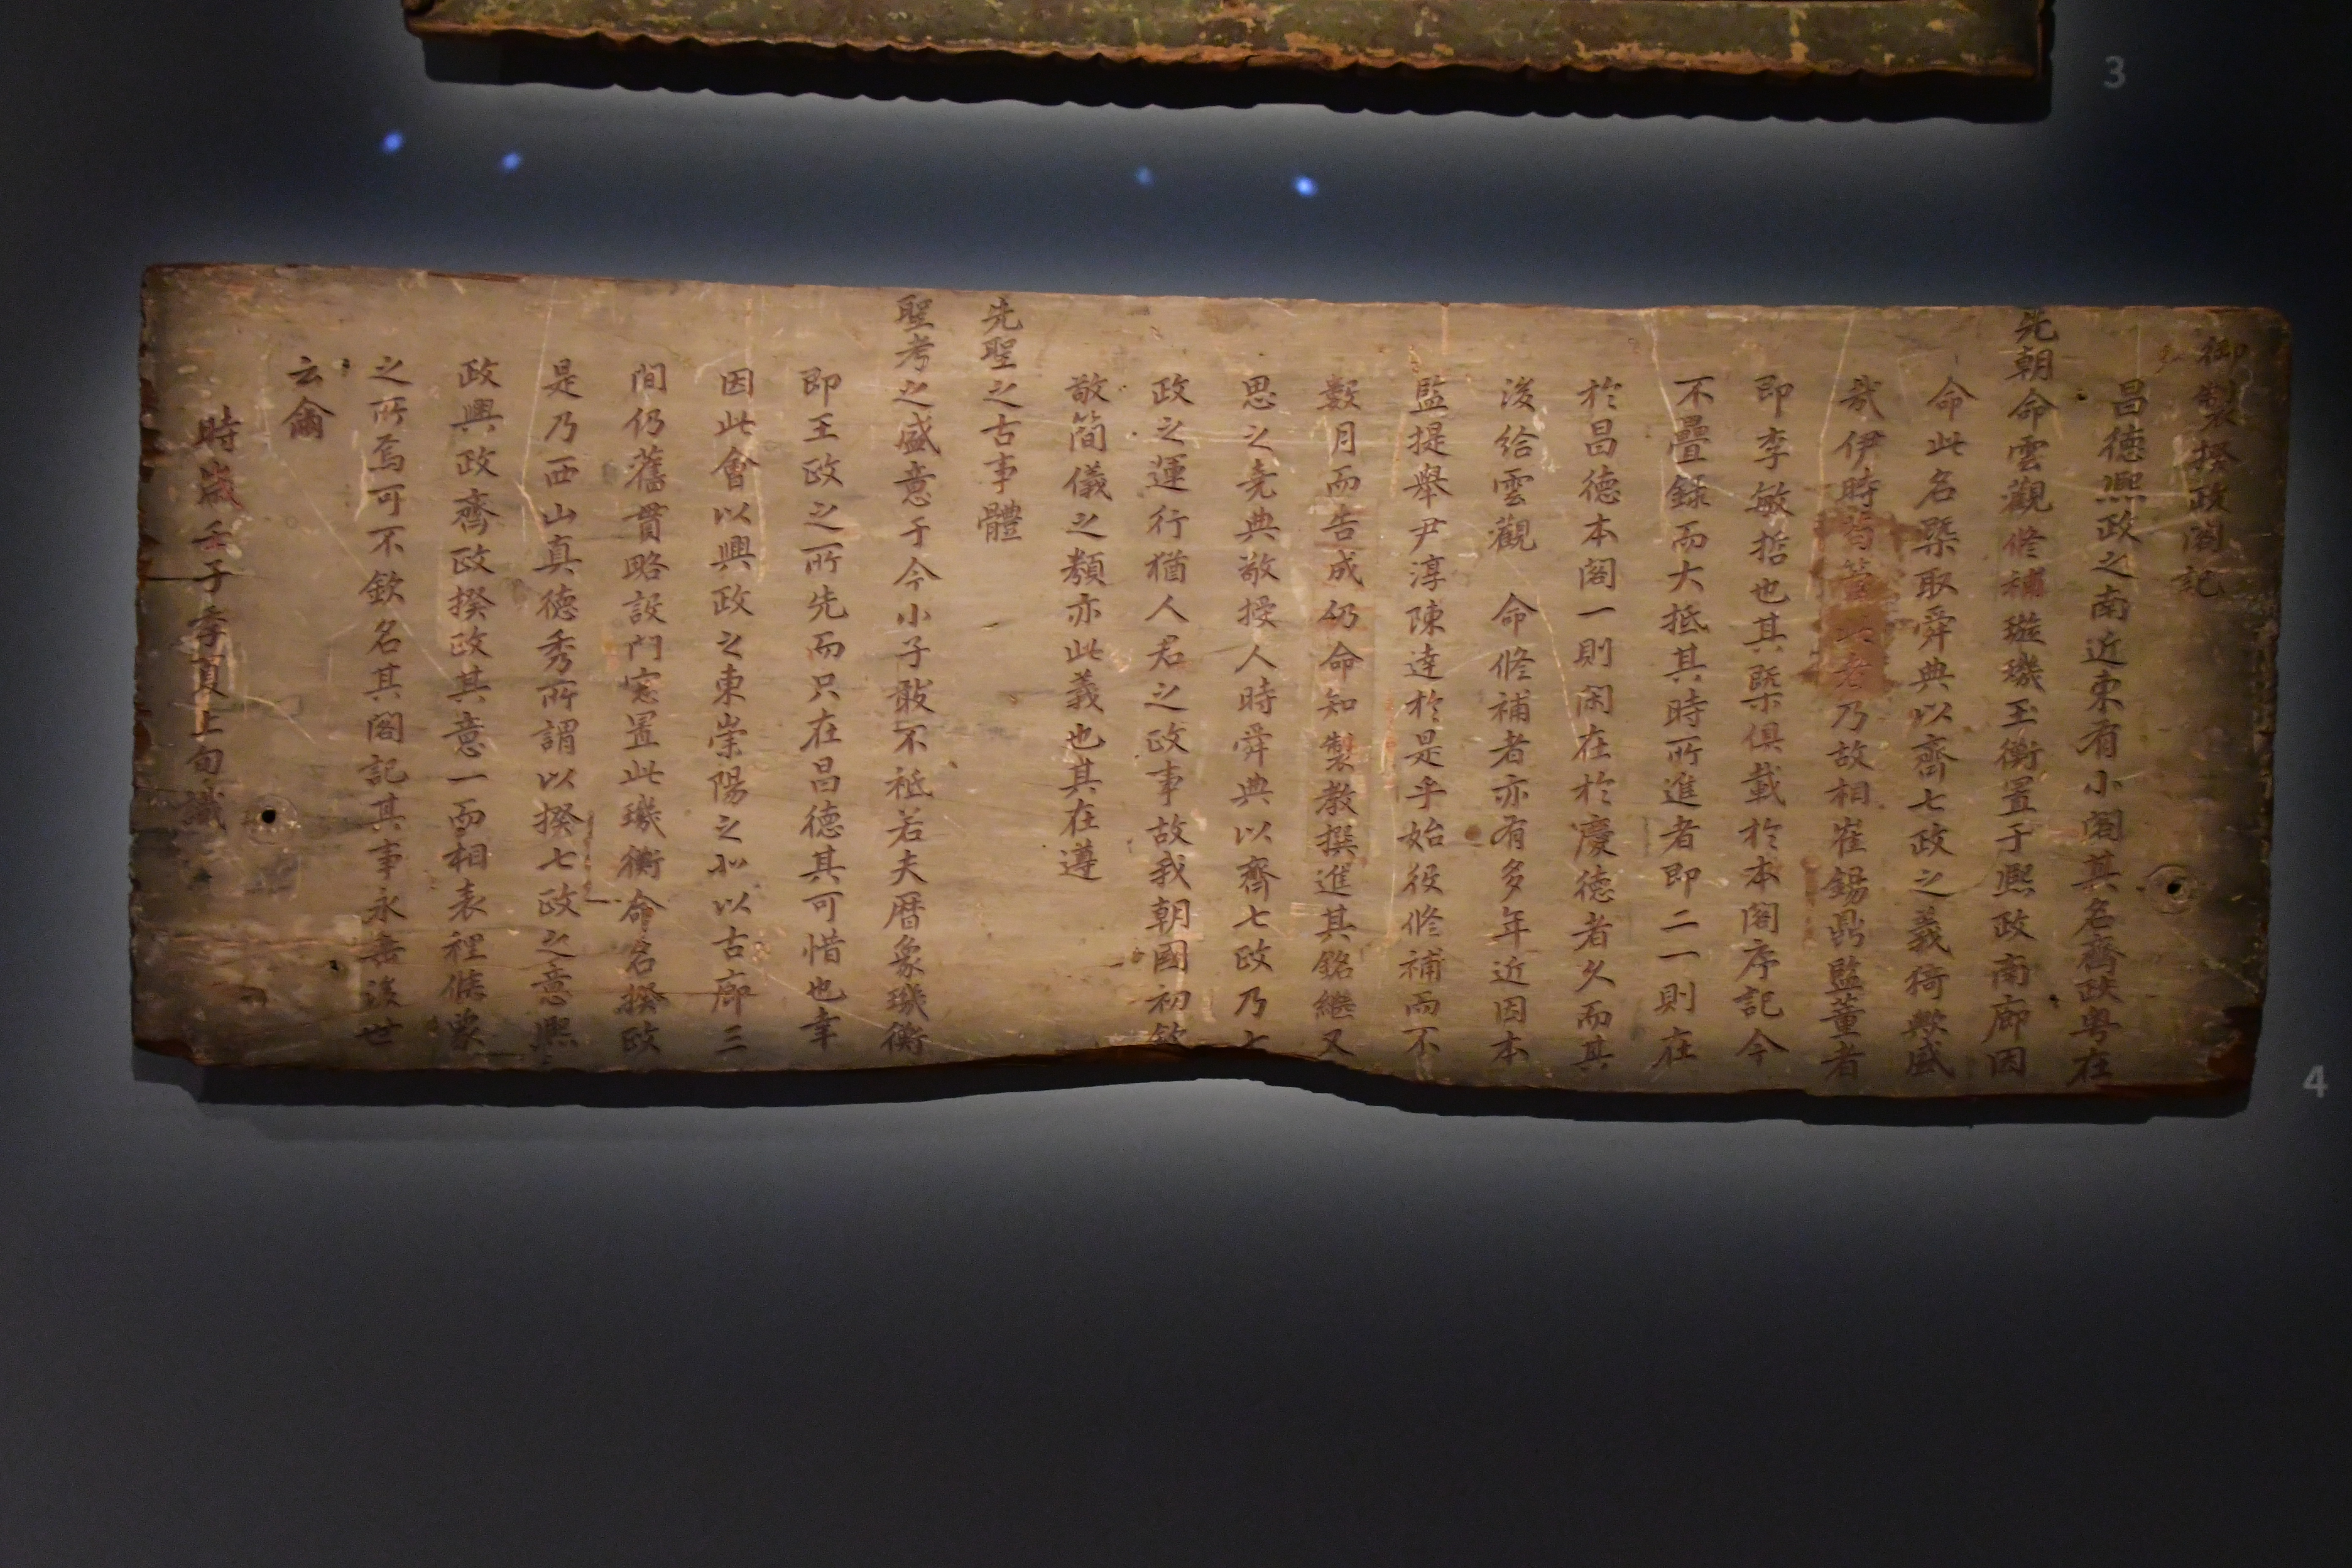 御製揆政閣記
昌德熙政之南近東有小閣其名齊政粤在
先朝命雲觀修補璇璣玉衡置于熙政南廊因
命此名槩取舜典以齊七政之義猗歟盛
哉伊時 乃故相崔錫鼎監董者
即李敏哲也其槩俱載於本閣序記今
不疊錄而大抵其時所進者即二一則在
於昌德本閣一則閑在於慶德者久而其
後給雲觀 命修補者亦有多年近因本
監提舉尹淳陳達於是乎始役修補而不
數月而告成仍命知製教撰進其銘繼又
思之堯典敬授人時舜典以齊七政乃七
政之運行猶人君之政事故我朝國初欽
敬簡儀之類亦此義也其在遵
先聖之古事體
聖考之盛意于今小子敢不祗若夫曆象璣衡
即王政之所先而只在昌德其可惜也幸
因此會以興政之東崇陽之北以古廊三
間仍舊貫略設門窓置此璣衡命名揆政
是乃西山真德秀所謂以揆七政之意熙
政興政齊政揆政其意一而相表裡倏蒙
之所焉可不欽名其閣記其事永垂後世
云爾
時歲壬子季夏上旬識
3
4